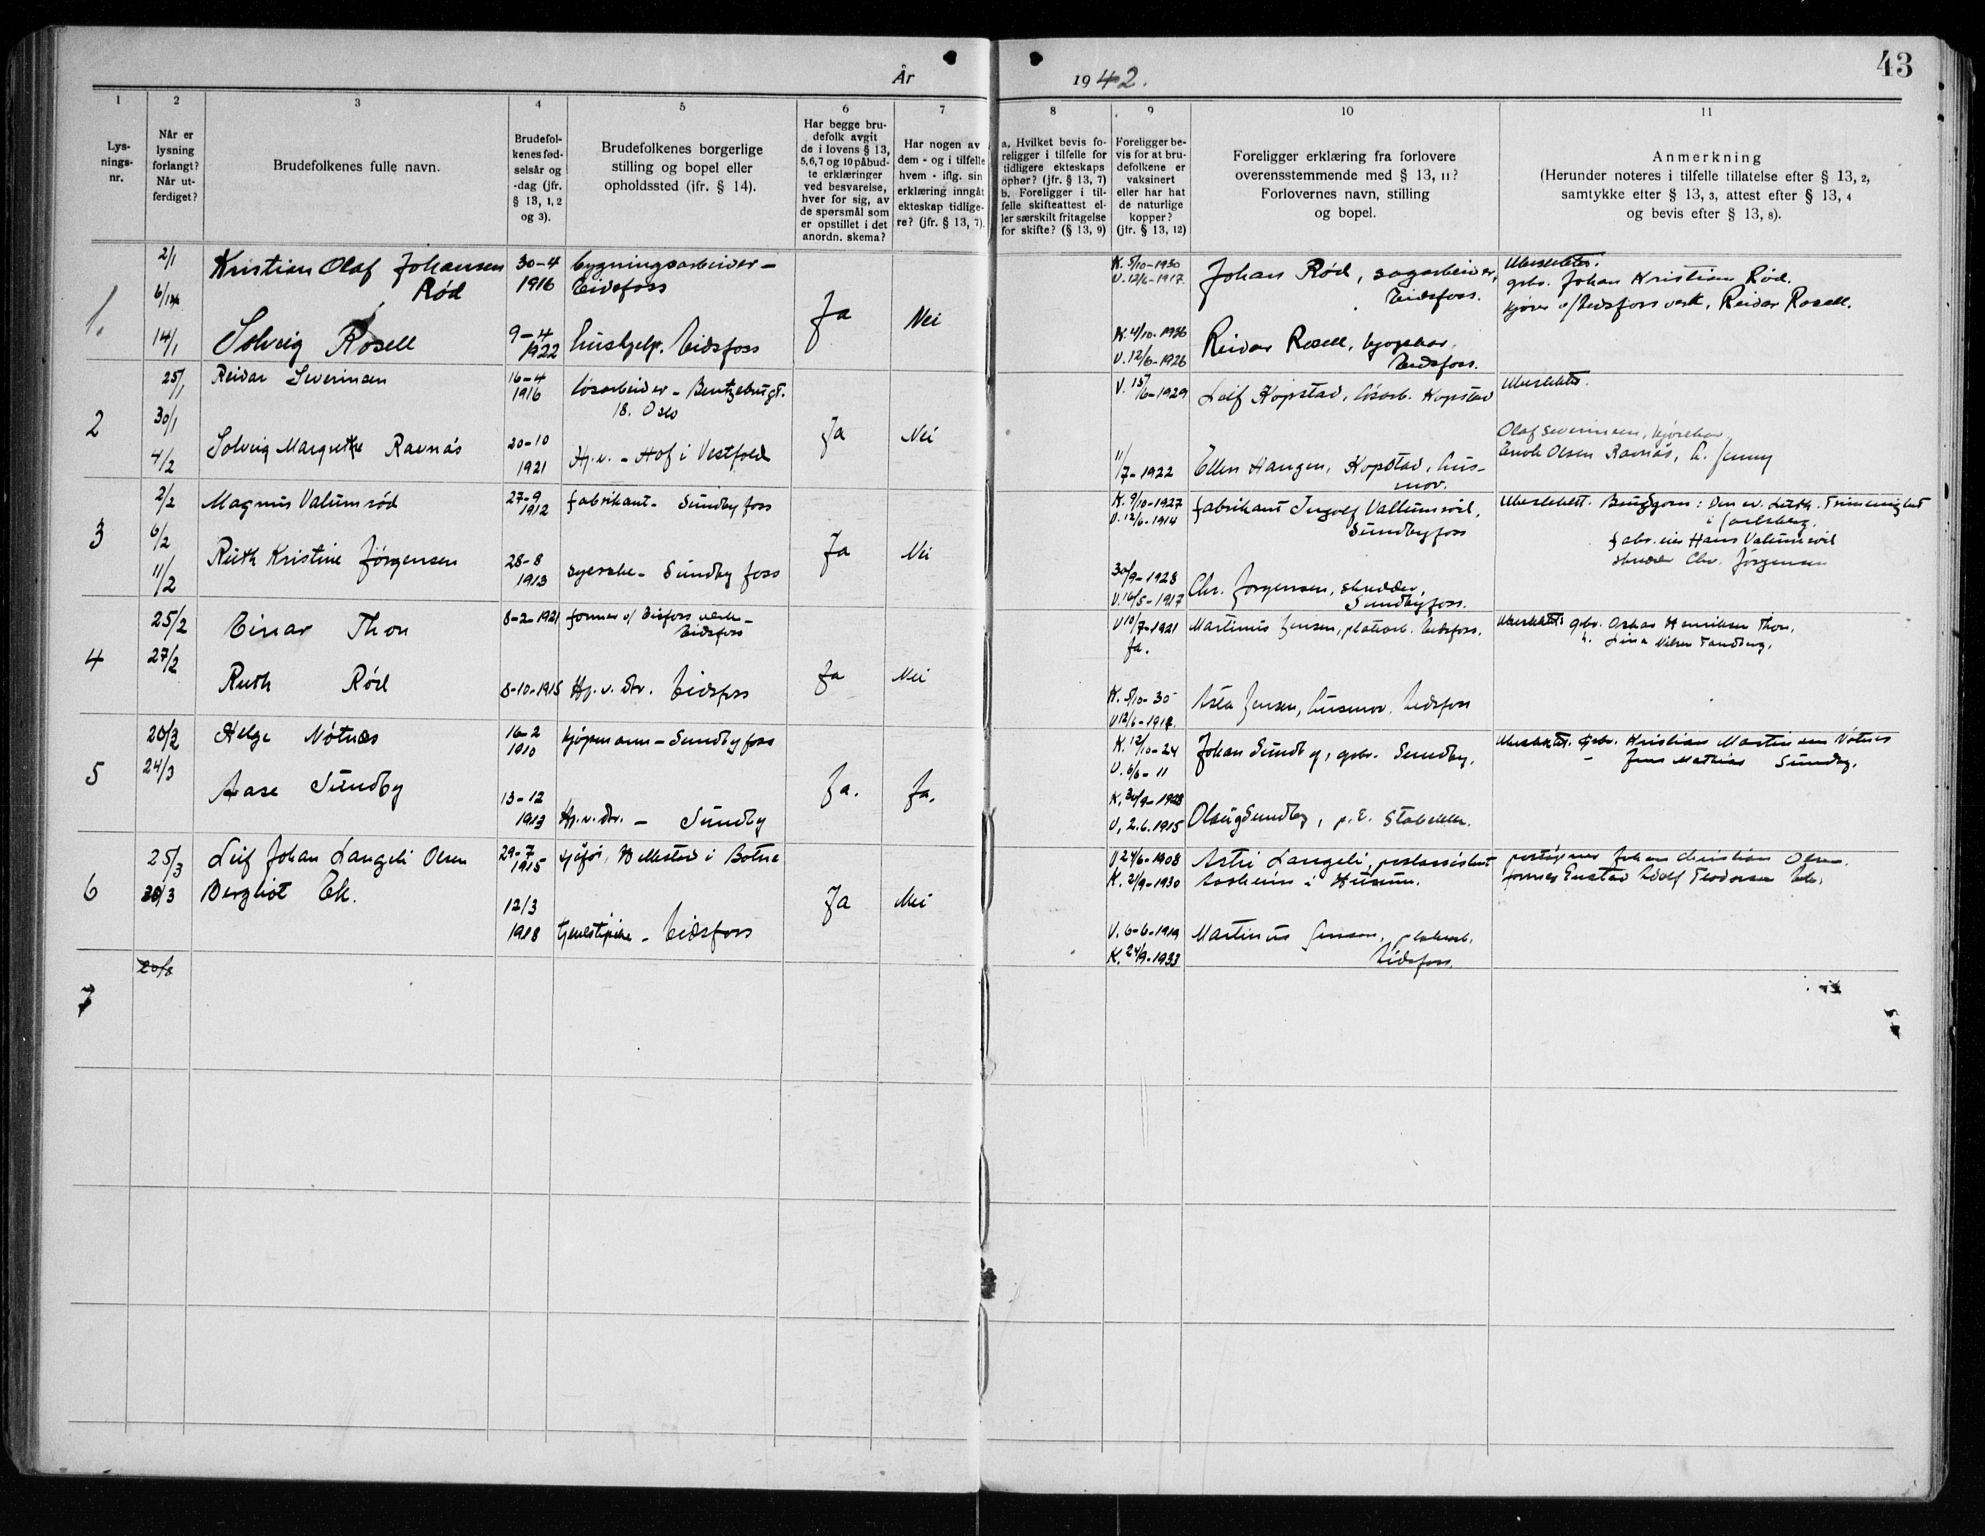 År 1942.
43
1 2 3 4 5 6 7 8 9 10 11
Lys-
nings-
nr.
Når er
lysning
forlangt?
Når ut-
ferdiget?
Brudefolkenes fulle navn.
Brudefol-
kenes fød-
selsår og
-dag (jfr.
§ 13, 1, 2
og 3).
Brudefolkenes borgerlige
stilling og bopel eller
opholdssted (jfr. § 14).
Har begge bru-
defolk avgit
de i lovens § 13,
5,6,7 og 10 påbud-
te erklæringer
ved besvarelse,
hver for sig, av
de spørsmål som
er opstillet i det
anordn. skema?
Har nogen av
dem - og i tilfelle
hvem - iflg. sin
erklæring inngåt
ekteskap tidlige-
re? (jfr. § 13, 7).
a. Hvilket bevis fo-
religger i tilfelle for
tidligere ekteskaps
ophør? (jfr. § 13, 7)
b. Foreligger i til-
felle skifteattest el-
ler særskilt fritagelse
for skifte? (§ 13, 9)
Foreligger be-
vis for at bru-
defolkene er
vaksinert
eller har hat
de naturlige
kopper?
(jfr. § 13, 12)
Foreligger erklæring fra forlovere
overensstemmende med § 13, 11?
Forlovernes navn, stilling
og bopel.
Anmerkning
(Herunder noteres i tilfelle tillatelse efter § 13, 2,
samtykke efter § 13, 3, attest efter § 13, 4
og bevis efter § 13, 8).
1.
2/1
14/1
Kristian Olaf Johansen
Rød
30-4
1916
bygningsarbeider -
Eidsfoss
Ja
Nei
K. 5/10-1930
V. 12/6-1917
Johan Rød, sagarbeider,
Eidsfoss.
Ubeslektet.
grb. Johan Kristian Rød.
kjører v/Eidsfoss verk, Reidar Rosell.
Solveig Rosell
9-4
1922
hushjelp. Eidsfoss
K. 4/10-1936
V. 12/6-1926
Reidar Rosell,
Eidsfoss.
2
25/1
30/1
4/2
Reidar Severinsen
16-4
1916
løsarbeider - Bentsebrugt.
18. Oslo
Ja
Nei
V. 15/6-1929
Leif Kopstad, løsarb. Kopstad
Ubeslektet.
Solveig Margrethe Ravnås
20-10
1921
Hj.v. - Hof i Vestfold
11/7-1922
Ellen Haugen, Kopstad, hus-
mor.
Olaf Severinsen,
Enok Olsen Ravnås, h. Jenny
3
2/2
6/2
11/2
Magnus Valumrød
27-9
1912
fabrikant - Sundbyfoss
Ja
Nei
K. 9/10-1927
V. 12/6-1914
fabrikant Ingolf Vallumrød,
Sundbyfoss
Ubeslektet. Brudgom: Den ev. luth. Frimenighet
i Jarlsberg.
fabr. eier Hans Valumrød
skredder Chr. Jørgensen
Ruth Kristine Jørgensen
28-8
1913
syerske - Sundbyfoss
30/9-1928
V. 16/5-1917
Chr. Jørgensen, skredder,
Sundbyfoss.
4
25/2
27/2
Einar Thon
8-2-1921
former v/ Eidsfoss verk -
Eidsfoss
Ja
Nei
V 10/7-1921
Ja.
Martinus Jensen, platearb. Eidsfoss.
Ubeslektet. grb. Oskar Henriksen Thon,
h. Lina Nilsen Tandberg.
Ruth Rød
8-10-1915
Hj.v. dtr. Eidsfoss
K. 5/10-30
Asta Jensen, husmor. Eidsfoss
5
20/3
24/3
Helge Nøtnes
16-2
1910
kjøpmann - Sundbyfoss
Ja.
Ja.
K. 12/10-24
V. 6/6-11
Johan Sundby, grbr. Sundby.
Ubeslektet. Grbr. Kristian Martinsen Nøtnes
- Jens Mathias Sundby.
Aase Sundby
13-12
1913
Hj.v. dtr. - Sundby
K. 30/9-1928
V. 2.6.1915
Olaug Sundby, p.t. Stabekk.
6
25/3
28/3
Leif Johan Langeli Olsen
29-7
1915
sjåfør, Hillestad i Botne
Ja
Nei
V. 24/6-1908
K. 2/9-1930
Astri Langeli, postassistent
Aasheim i Husum.
Johan Christian Olsen.
former Gustav Adolf Teodorsen Ek.
Bergliot Ek.
12/3
1918
tjenestepike - Eidsfoss
V. 6-6-1919
K. 24/9-1933
Martinus Jensen, platearb.
Eidsfoss.
7